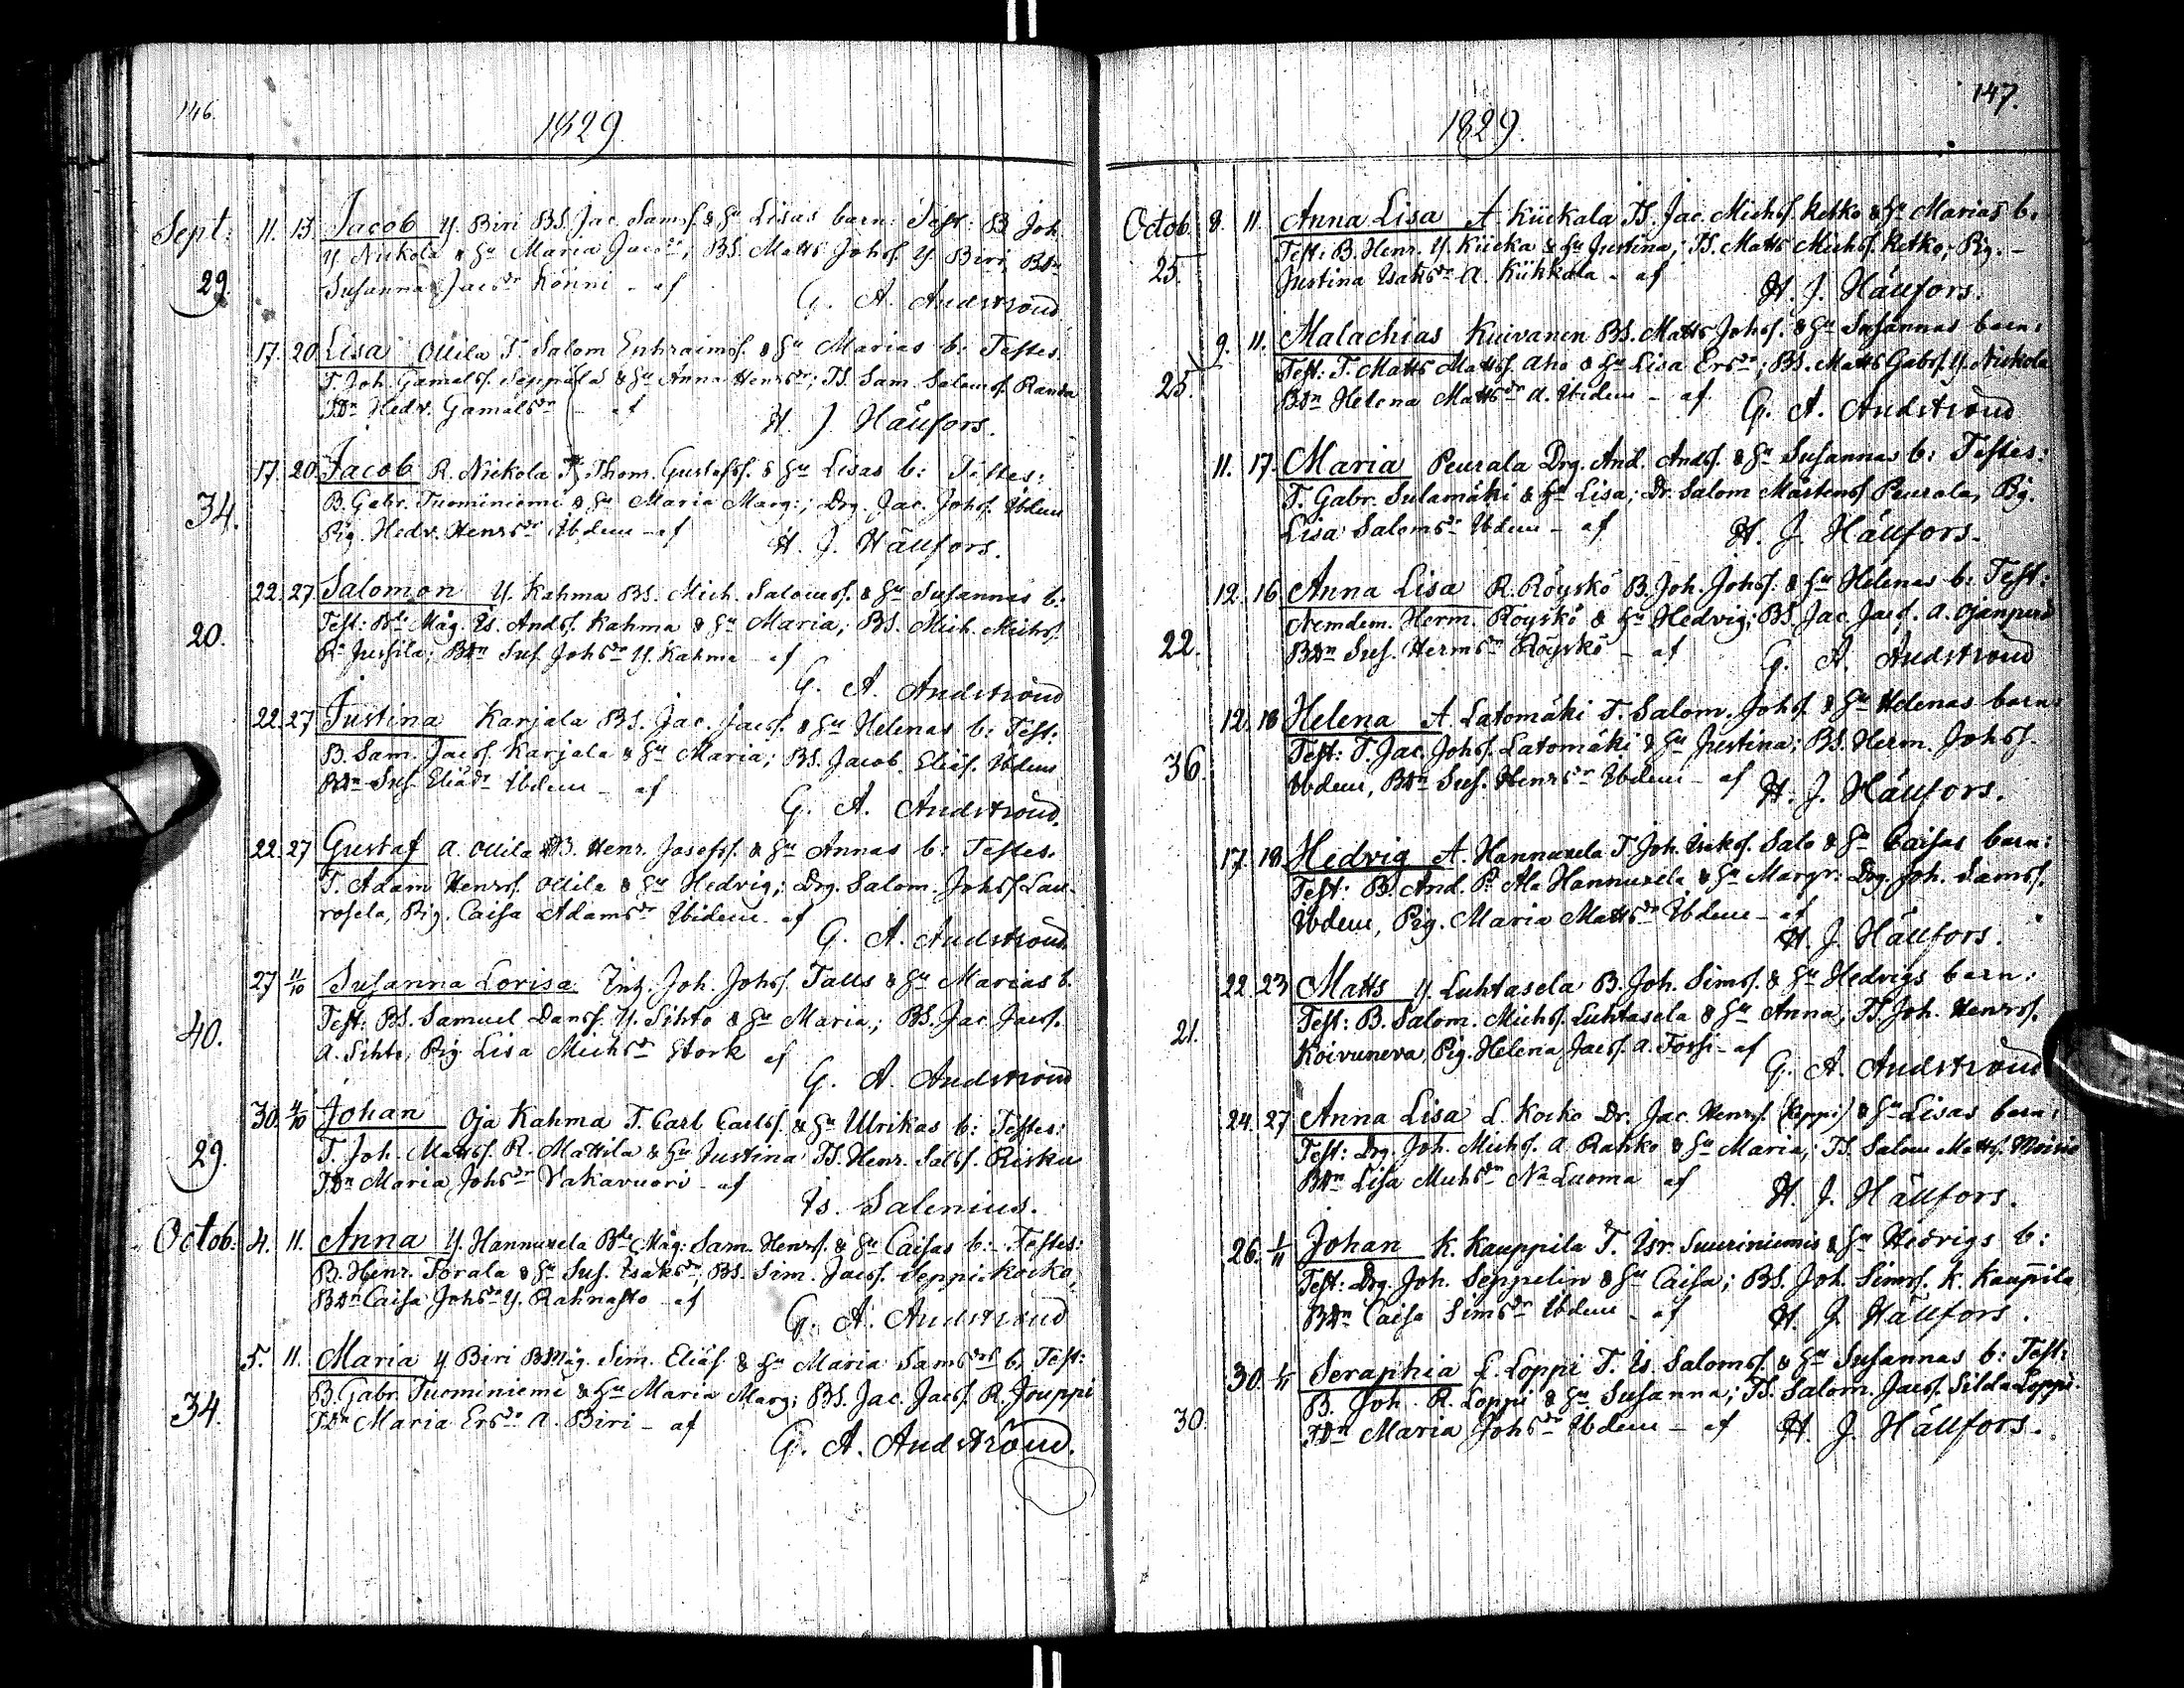 146.
1829
Sept: 11. 13. Jacob Y. Biri BS. Jac. Sams. & Hu Lisas barn: Test: B. Joh.
Y. Nickola & Hu Maria Jacsdr; BS. Matts Johs. Y. Biri, BDn
29. Susanna Jacsdr Könni - af
G. A. Andström
17. 20 Lisa Ollila T. Salom Ephraims. & Hu Marias b: Testes.
T. Joh. Gamals. Seppälä & Hu Anna Henrsdr; TS. Sam. Saloms. Randa
TDn Hedv. Gamalsdr - af
H. J. Hällfors.
17. 20 Jacob R. Nickola T. Thom. Gustafs. & Hu Lisas b: Testes:
B. Gabr. Tuominiemi & Hu Maria Marg:; Drg. Jac. Johs. Ibdem
34. Pig. Hedv. Henrsdr Ibdem - af
H. J. Hällfors.
22. 27 Salomon Y. Kahma BS. Mich. Saloms. & Hu Susannas b:
20. Test: Måg. Is. Ands. Kahma & Hu Maria; BS. Mich. Michs.
R. Jussila; BDn Sus. Johsdr Y. Kahma - af
G. A. Andström
22. 27 Justina Karjala BS. Jac. Jacs. & Hu Helenas b: Test:
B. Sam. Jacs. Karjala & Hu Maria; BS. Jacob. Elias. Ibdem
BDn Sus. Eliasdr Ibdem - af
G. A. Andström.
22. 27 Gustaf A. Ollila B. Henr. Josefs. & Hu Annas b: Testes.
T. Adam Henrs. Ollila & Hu Hedvig; Drg. Salom. Johs. Lau-
rosela, Pig. Caisa Adamsdr Ibidem - af
G. A. Andström.
27 11/10 Susanna Lovisa Inh. Joh. Johs. Talls & Hu Marias b.
Test: BS. Samuel Dans. Y. Sihto & Hu Maria; BS. Jac Jacs.
40. A. Sihto, Pig. Lisa Michsdr Stork af
G. A. Andström
30. 4/10 Johan Oja Kahma T. Carl Carls. & Hu Ulrikas b: Testes:
29. T. Joh. Matts. R. Mattila & Hu Justina TS. Henr. Sals. Risku
TDn Maria Johsdr Vakavuori - af
Is. Salenius.
Octob: 4. 11. Anna Y. Hannuxela Måg: Sam. Henrs. & Hu Caisas b: Testes:
B. Henr. Torala & Hu Sus. Isaksdr; BS. Sim. Jacs. Seppi Kocko,
BDn Caisa Johsdr Y. Rahnasto - af
G. A. Andström
5. 11. Maria Y. Biri BMåg. Sim. Elias. & Hu Maria Samsdrs b. Test:
B. Gabr. Tuominiemi & Hu Maria Marg; BS. Jac. Jacs. R. Jouppi
34. TDn Maria Ersdr A. Biri - af
G. A. Andström.
147.
1829.
Octob. 8. 11. Anna Lisa A. Kückala TS. Jac. Michs. Ketko & Hu Marias b.
Test: B. Henr. Y. Kücka & Hu Justina; TS. Matts Michs. Ketko; Pig. -
25. Justina Isaksdr A. Kükkala - af
H. J. Hällfors.
9. 11. Malachias Kuivanen BS. Matts Johs. & Hu Susannas barn:
25. Test: T. Matts Matts. Aho & Hu Lisa Ersdr; BS. Matts Gabs. Y. Nickola
BDn Helena Mattsdr A. Ibdem - af
G. A. Andström
11. 17. Maria Peurala Drg. And. Ands. & Hu Susannas b: Testes:
T. Gabr. Sulamäki & Hu Lisa; Dr. Salom Mårtens. Peurala, Pig.
Lisa Salomsdr Ibdem - af
H. J. Hällfors.
12. 16 Anna Lisa R. Röyskö B. Joh. Johs. & Hu Helenas b: Test:
Nemdem. Herm. Röyskö & Hu Hedvig; BS. Jac. Jacs. A. Ojanperä
22. BDn Sus. Hermsdr Röyskö - af
G. A. Andström
12. 18 Helena A. Latomäki T. Salom. Johs. & Hu Helenas barn:
36. Test: T. Jac. Johs. Latomäki & Hu Justina; BS. Herm. Johs.
Ibdem, BDn Sus. Henrsdr Ibdem - af
H. J. Hällfors.
17. 18 Hedvig A. Hannuxela T. Joh. Isaks. Salo & Hu Caisas barn:
Test: B. And. P. Ala Hannuxela & Hu Margr: Drg. Joh. Sams.
Ibdem, Pig. Maria Mattsdr Ibdem - af
H. J. Hällfors.
22. 23 Matts Y. Luhtasela B. Joh. Sims. & Hu Hedvigs barn:
21. Test: B. Salom. Michs. Luhtasela & Hu Anna, TS. Joh. Henrs.
Koivuneva, Pig. Helena Jacs. A. Torsi - af
G. A. Andström
24. 27 Anna Lisa L. Kocko Dr. Jac. Henrs. (Seppi) & Hu Lisas barn:
Test: Drg. Joh. Michs. A. Rahko & Hu Maria; TS. Salom Matts. Moisio
BDn Lisa Michsdr Na Luoma af
H. J. Hällfors.
26. 1/11 Johan K. Kauppila T. Isr. Suuriniemis & Hu Hedvigs b:
Test: Drg. Joh. Seppelin & Hu Caisa; BS. Joh. Sims. K. Kauppila
BDn Caisa Simsdr Ibdem - af
H. J. Hällfors.
30. 1/11 Seraphia L. Loppi T. Is. Saloms. & Hu Susannas b: Test:
B. Joh. R. Loppi & Hu Susanna; TS. Salom. Jacs. Silda Loppi.
30. TDn Maria Johsdr Ibdem - af
H. J. Hällfors.